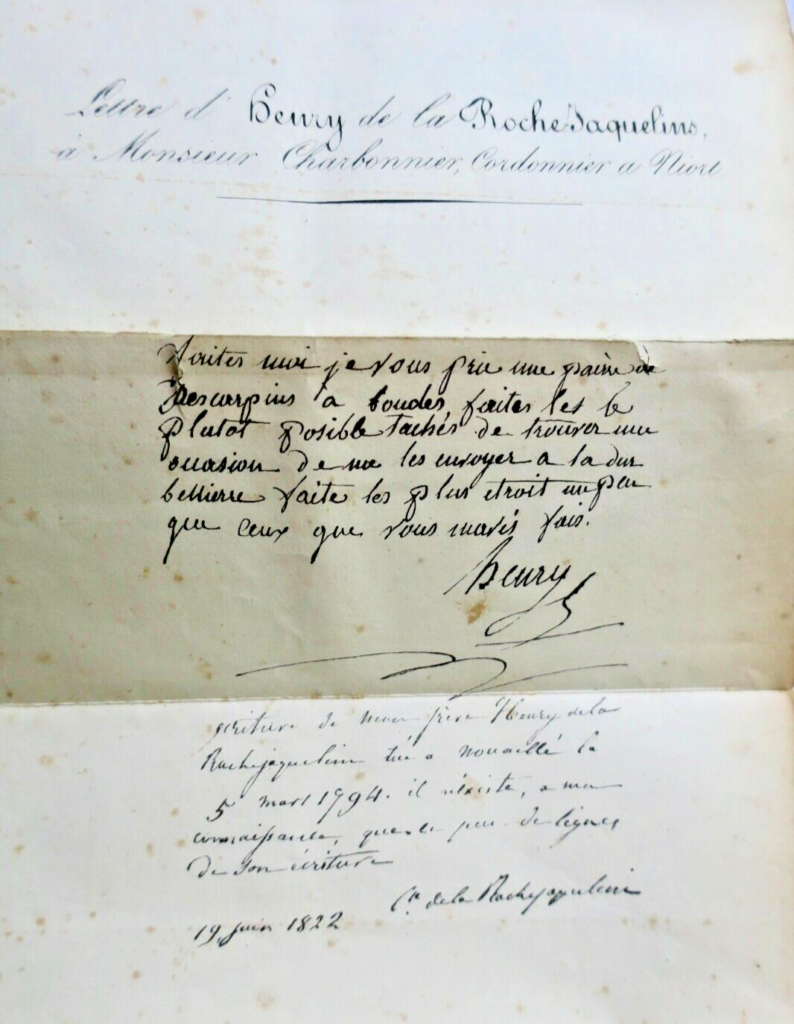 Lettre d' Henry de la RocheJaquelins,
à Monsieur Charbonnier, Cordonnier a Niort
faites moi je vous prie une paire
descarpins a boucles faites les le
plutot posible tachés de trouver une
occasion de me les envoyer a la dur
bellierre faite les plus etroit un peu
que ceux que vous mavés fais.
henry
ecriture de mon frere Henry de la
Rochejaquelin tué a nouaillé le
5 mars 1794. il n'existe, a ma
connaissance, que ce peu de lignes
de son écriture
Cte de la Rochejaquelein
19 juin 1822